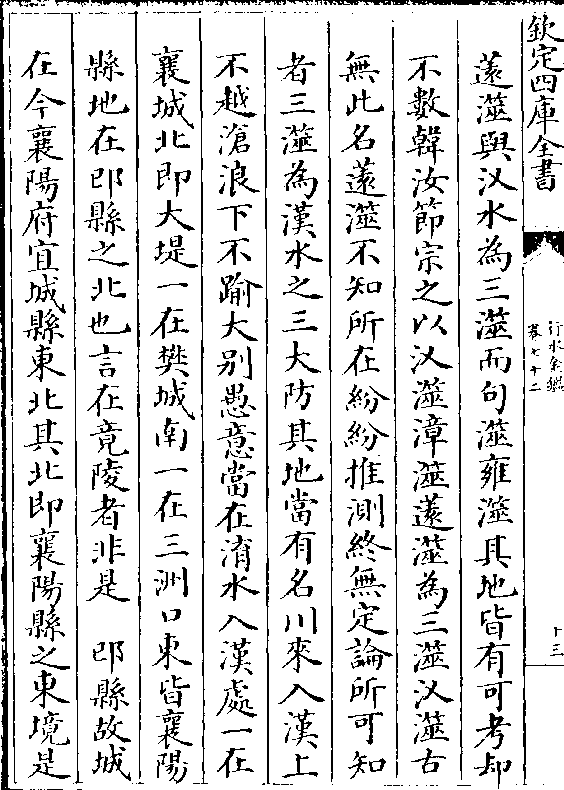 欽定四庫全書
行水金鑑
卷七十二
十三
薳澨與汊水為三澨而句澨雍澨其地皆有可考却
不數韓汝節宗之以汊澨漳澨薳澨為三澨汊澨古
無此名薳澨不知所在紛紛推測終無定論所可知
者三澨為漢水之三大防其地當有名川來入漢上
不越滄浪下不踰大别愚意當在淯水入漢處一在
襄城北即大堤一在樊城南一在三洲口東皆襄陽
縣地在邔縣之北也言在竟陵者非是　邔縣故城
在今襄陽府宜城縣東北其北即襄陽縣之東境是